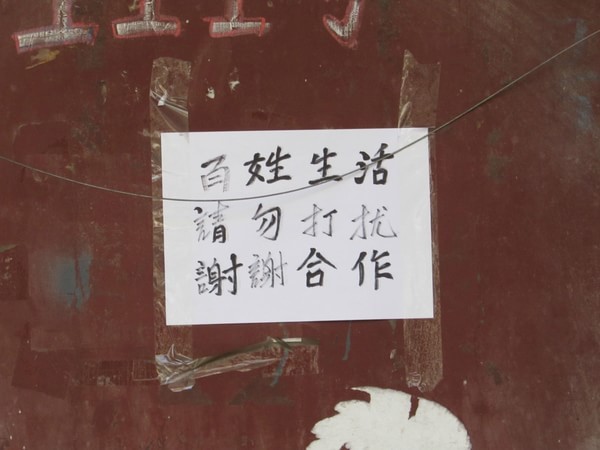 百姓生活
請勿打扰
謝謝合作